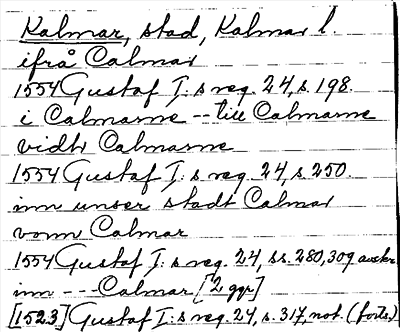 Kalmar, stad, Kalmar l.
ifrå Calmar
1554 Gustaf I:s reg. 24, s. 198.
i Calmarne -- till Calmarne
vidh Calmarne
1554 Gustaf I:s reg. 24, s. 250.
inn unser stadt Calmar
vonn Calmar
1554 Gustaf I:s reg. 24, ss. 280, 309
inn --- Calmar [2 ggr]
[1523] Gustaf I:s reg. 24, s. 317, not. (forts.)